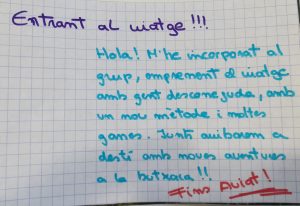 Entrant al viatge!!!
Hola! M'he incorporat al
grup, emprenent el viatge
amb gent desconeguda, amb
un nou mètode i moltes
ganes. Junts arribarem a
destí amb noves aventures
a la butxaca!!
Fins Aviat!